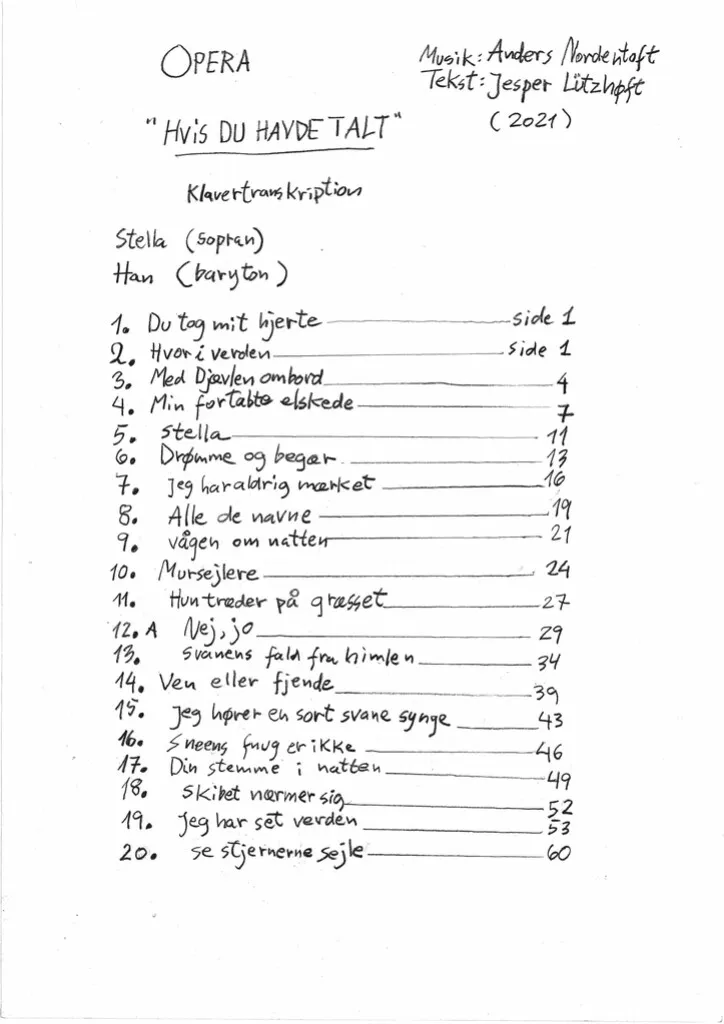 OPERA
Musik: Anders Nordentoft
Tekst: Jesper Lützhøft
"HVIS DU HAVDE TALT"
(2021)
Klavertranskription
Stella (sopran)
Han (baryton)
1. Du tog mit hjerte side 1
2. Hvor i verden side 1
3. Med Djævlen ombord 4
4. Min fortabte elskede 7
5. Stella 11
6. Drømme og begær 13
7. Jeg har aldrig mærket 16
8. Alle de navne 19
9. vågen om natten 21
10. Mursejlere 24
11. Hun træder på græsset 27
12. A Nej, jo 29
13. Svanens fald fra himlen 34
14. Ven eller fjende 39
15. Jeg hører en sort svane synge 43
16. Sneens fnug er ikke 46
17. Din stemme i natten 49
18. Skibet nærmer sig 52
19. Jeg har set verden 53
20. se stjernerne sejle 60